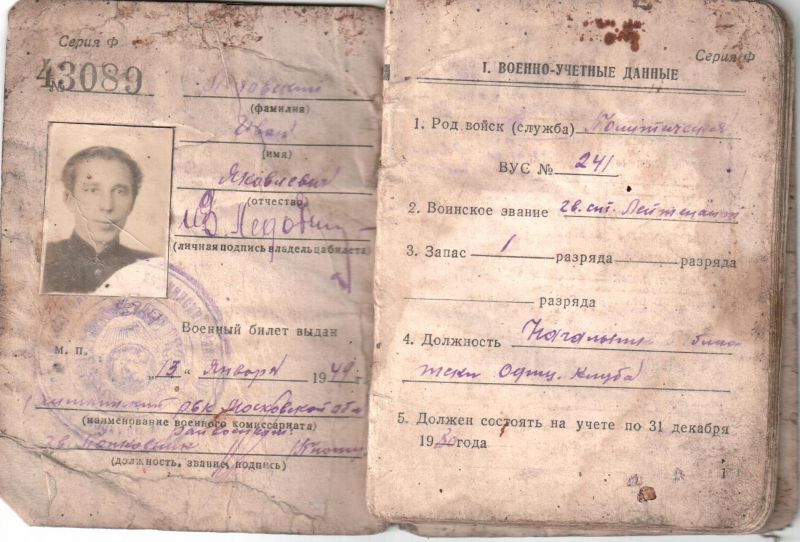 Серия Ф
№ 43089
(фамилия)
Иван
(имя)
Яковлевич
(отчество)
(личная подпись владельца билета)
Военный билет выдан
М. П.
"13" Января 1949 г.
РВК Московской обл
(наименование военного комиссариата)
Гв. Полковник
(должность, звание, подпись)
Серия Ф
I. ВОЕННО-УЧЕТНЫЕ ДАННЫЕ
1. Род войск (служба) Политическая
ВУС № 241
2. Воинское звание гв. ст. Лейтенант
3. Запас 1 разряда разряда
разряда
4. Должность Начальник библио
теки Офиц. Клуба
5. Должен состоять на учете по 31 декабря
1950 года